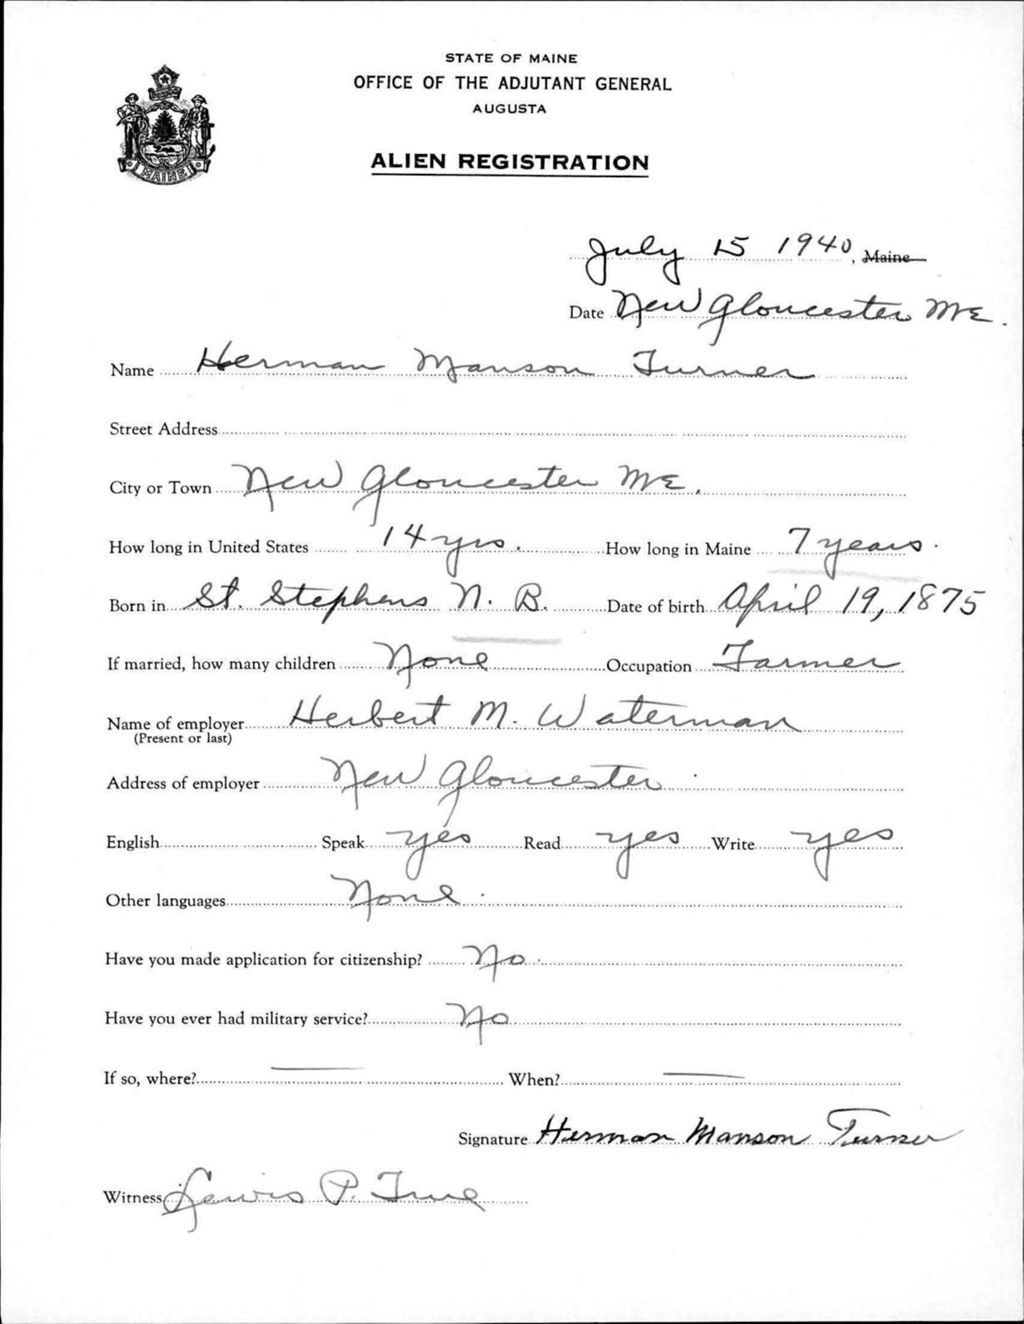 STATE OF MAINE
OFFICE OF THE ADJUTANT GENERAL
AUGUSTA
MAINE
ALIEN REGISTRATION
July 15 1940, Maine
Date New Gloucester ME.
Name Herman Manson Turner
Street Address
City or Town New Gloucester ME.
How long in United States 14 yrs. How long in Maine 7 years.
Born in St. Stephens N. B. Date of birth April 19, 1875
If married, how many children None Occupation Farmer
Name of employer Herbert M. Waterman
(Present or last)
Address of employer New Gloucester.
English Speak yes Read yes Write yes
Other languages None.
Have you made application for citizenship? No.
Have you ever had military service? No
If so, where? — When? —
Signature Herman Manson Turner
Witness Lewis P. True